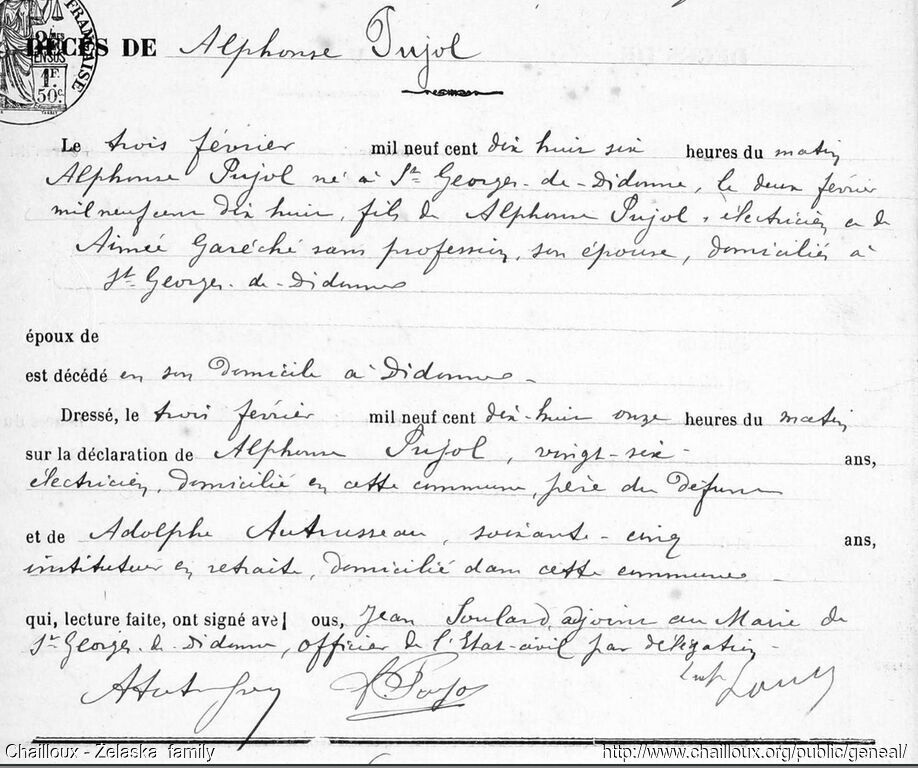 FRANÇAISE
2
EN SUS
1F.
50c
DÉCÈS DE Alphonse Pujol
Le trois février mil neuf cent dix huit six heures du matin
Alphonse Pujol né à St Georges-de-Didonne, le deux février
mil neuf cent dix huit, fils de Alphonse Pujol, électricien et de
Aimée Garéché sans profession, son épouse, domiciliés à
St Georges-de-Didonne
époux de
est décédé en son domicile à Didonne -
Dressé, le trois février mil neuf cent dix-huit onze heures du matin
sur la déclaration de Alphonse Pujol, vingt-six - ans,
électricien, domicilié en cette commune, père du défunt
et de Adolphe Autrusseau, soixante-cinq ans,
instituteur en retraite, domicilié dans cette commune -
qui, lecture faite, ont signé ave ous, Jean Soulard, adjoint au Maire de
St Georges de Didonne, officier de l'Etat-civil par délégation -
A Pujol
Chailloux - Zelaska family http://www.chailloux.org/public/geneal/